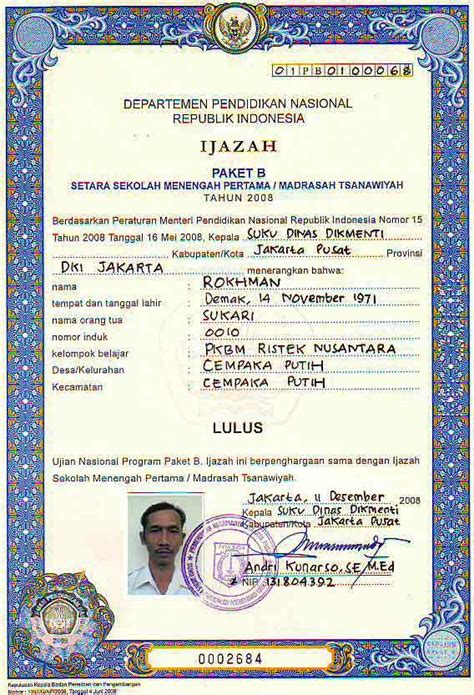 01PB0100068
DEPARTEMEN PENDIDIKAN NASIONAL
REPUBLIK INDONESIA
IJAZAH
PAKET B
SETARA SEKOLAH MENENGAH PERTAMA / MADRASAH TSANAWIYAH
TAHUN 2008
Berdasarkan Peraturan Menteri Pendidikan Nasional Republik Indonesia Nomor 15
Tahun 2008 Tanggal 16 Mei 2008, Kepala SUKU DINAS DIKMENTI
Kabupaten/Kota Jakarta Pusat Provinsi
DKI JAKARTA menerangkan bahwa:
nama : ROKHMAN
tempat dan tanggal lahir : Demak, 14 November 1971
nama orang tua : SUKARI
nomor induk : 0010
kelompok belajar : PKBM RISTEK NUSANTARA
Desa/Kelurahan : CEMPAKA PUTIH
Kecamatan : CEMPAKA PUTIH
LULUS
Ujian Nasional Program Paket B. Ijazah ini berpenghargaan sama dengan Ijazah
Sekolah Menengah Pertama / Madrasah Tsanawiyah.
Jakarta, 11 Desember 2008
Kepala Suku Dinas Dikmenti
Kabupaten/Kota Jakarta Pusat
Andri Kunarso, SE, M.Ed
NIP. 131804392
0002684
Keputusan Kepala Badan Penelitian dan Pengembangan
Tanggal 4 Juni 2008